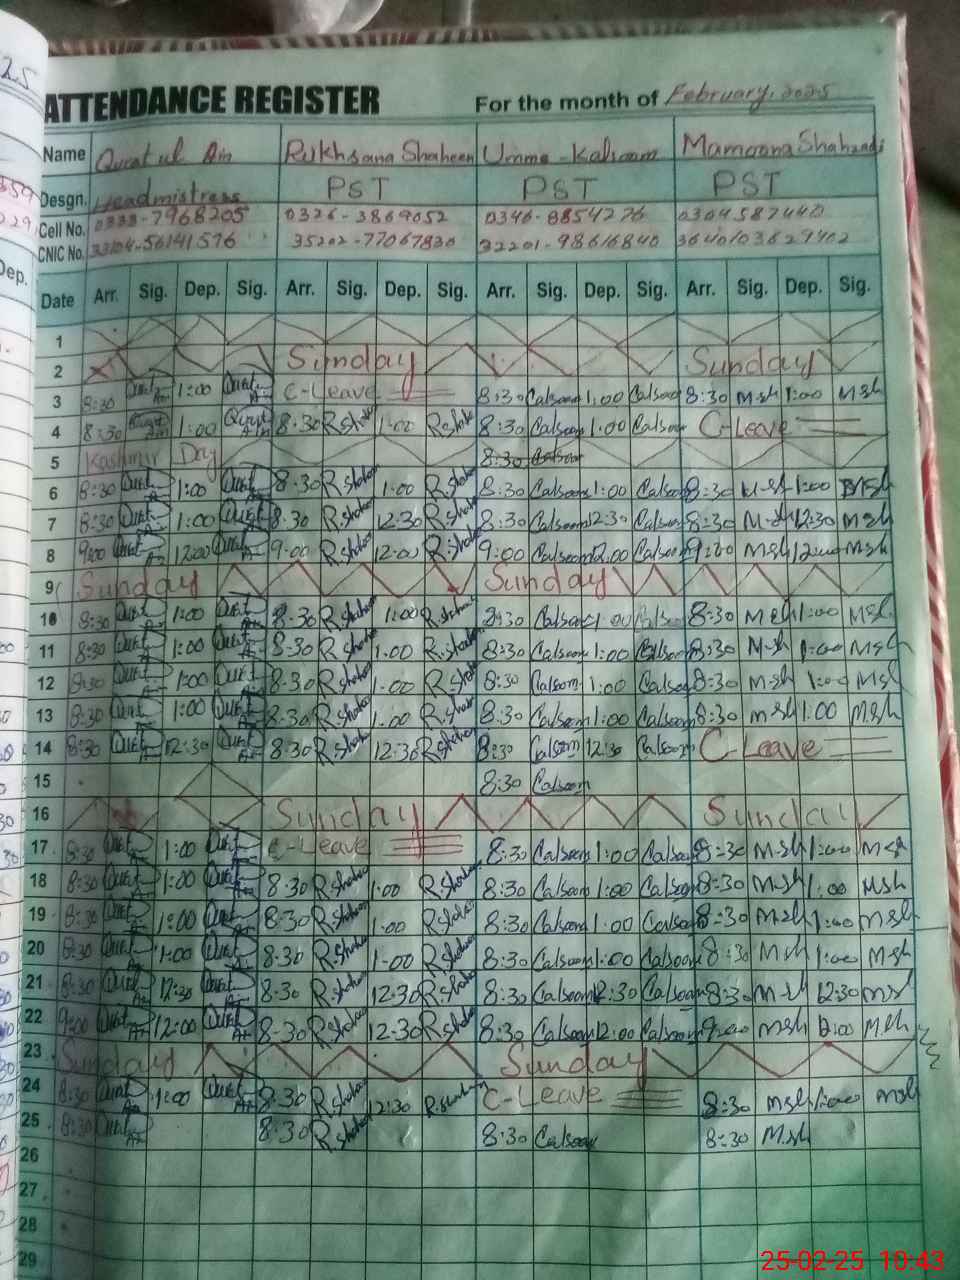 25
ATTENDANCE REGISTER For the month of February, 2025
Name Qurat ul Ain Rukhsana Shaheen Umme-Kalsoom Mamoona Shahzadi
Desgn. Headmistress PST PST PST
Cell No. 0333-7968205 0326-3869052 0346-8854276 0304587440
CNIC No. 33104-56141576 35202-77067830 32201-98616840 3640103629402
Dep.
Date Arr. Sig. Dep. Sig. Arr. Sig. Dep. Sig. Arr. Sig. Dep. Sig. Arr. Sig. Dep. Sig.
1
2 Sunday Sunday
3 8:30 Qurat Ain 1:00 Qurat Ain C-Leave 8:30 Calsoom 1:00 Calsoom 8:30 Msh 1:00 Msh
4 8:30 Qurat Ain 1:00 Qurat Ain 8:30 R.shaheen 1:00 R.shaheen 8:30 Calsoom 1:00 Calsoom C-Leave
5 Kashmir Day 8:30 Calsoom
6 8:30 Qurat Ain 1:00 Qurat Ain 8:30 R.shaheen 1:00 R.shaheen 8:30 Calsoom 1:00 Calsoom 8:30 Msh 1:00 Msh
7 8:30 Qurat Ain 1:00 Qurat Ain 8:30 R.shaheen 12:30 R.shaheen 8:30 Calsoom 12:30 Calsoom 8:30 Msh 12:30 Msh
8 9:00 Qurat Ain 12:00 Qurat Ain 9:00 R.shaheen 12:00 R.shaheen 9:00 Calsoom 12:00 Calsoom 9:00 Msh 12:00 Msh
9 Sunday Sunday
10 8:30 Qurat Ain 1:00 Qurat Ain 8:30 R.shaheen 1:00 R.shaheen 8:30 Calsoom 1:00 Calsoom 8:30 Msh 1:00 Msh
11 8:30 Qurat Ain 1:00 Qurat Ain 8:30 R.shaheen 1:00 R.shaheen 8:30 Calsoom 1:00 Calsoom 8:30 Msh 1:00 Msh
12 8:30 Qurat Ain 1:00 Qurat Ain 8:30 R.shaheen 1:00 R.shaheen 8:30 Calsoom 1:00 Calsoom 8:30 Msh 1:00 Msh
13 8:30 Qurat Ain 1:00 Qurat Ain 8:30 R.shaheen 1:00 R.shaheen 8:30 Calsoom 1:00 Calsoom 8:30 Msh 1:00 Msh
14 8:30 Qurat Ain 12:30 Qurat Ain 8:30 R.shaheen 12:30 R.shaheen 8:30 Calsoom 12:30 Calsoom C-Leave
15 8:30 Calsoom
16 Sunday Sunday
17 8:30 Qurat Ain 1:00 Qurat Ain C-Leave 8:30 Calsoom 1:00 Calsoom 8:30 Msh 1:00 Msh
18 8:30 Qurat Ain 1:00 Qurat Ain 8:30 R.shaheen 1:00 R.shaheen 8:30 Calsoom 1:00 Calsoom 8:30 Msh 1:00 Msh
19 8:30 Qurat Ain 1:00 Qurat Ain 8:30 R.shaheen 1:00 R.shaheen 8:30 Calsoom 1:00 Calsoom 8:30 Msh 1:00 Msh
20 8:30 Qurat Ain 1:00 Qurat Ain 8:30 R.shaheen 1:00 R.shaheen 8:30 Calsoom 1:00 Calsoom 8:30 Msh 1:00 Msh
21 8:30 Qurat Ain 12:30 Qurat Ain 8:30 R.shaheen 12:30 R.shaheen 8:30 Calsoom 12:30 Calsoom 8:30 Msh 12:30 Msh
22 9:00 Qurat Ain 12:00 Qurat Ain 8:30 R.shaheen 12:30 R.shaheen 8:30 Calsoom 12:00 Calsoom 9:00 Msh 12:00 Msh
23 Sunday Sunday
24 8:30 Qurat Ain 1:00 Qurat Ain 8:30 R.shaheen 12:30 R.shaheen C-Leave 8:30 Msh 1:00 Msh
25 8:30 Qurat Ain 8:30 R.shaheen 8:30 Calsoom 8:30 Msh
26
27
28
29
25-02-25 10:43